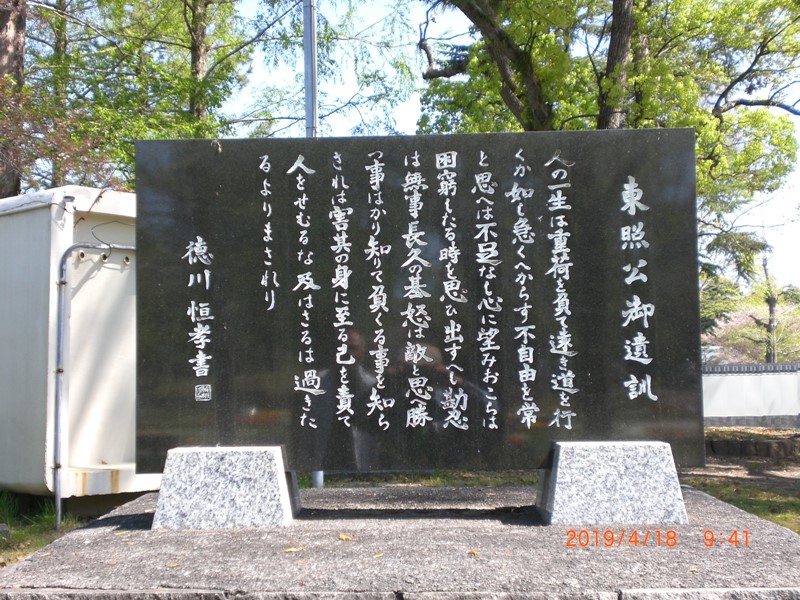 東照公御遺訓
人の一生は重荷を負て遠き道を行
くか如し急くへからす不自由を常
と思へは不足なし心に望みおこらは
困窮したる時を思ひ出すへし勘忍
は無事長久の基怒は敵と思へ勝
つ事はかり知りて負くる事を知ら
されは害其の身に至る己を責て
人をせむるな及はさるは過きた
るよりまされり
徳川恒孝書
2019/4/18 9:41